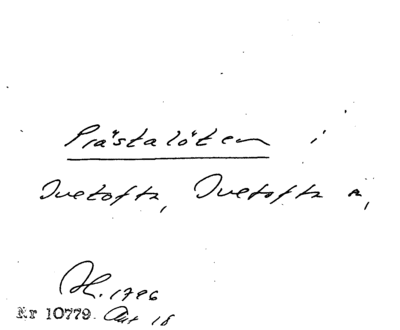 Prästalöten i
Ivetofta, Ivetofta n,
H. 1796
Nr 10779. Akt 18